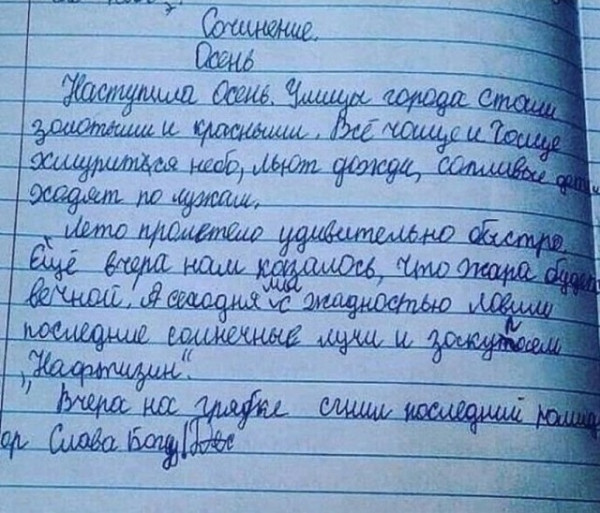 Сочинение.
Осень
Наступила Осень. Улицы города стали
золотыми и красными. Всё чаще и чаще
хмуриться небо, льют дожди, сопливые дети
ходят по лужам.
Лето пролетело удивительно быстро
Ещё вчера нам казалось, что жара будет
вечной. А сегодня мы с жадностью ловим
последние солнечные лучи и закупаем
„Нафтизин“.
Вчера на грядке сгнил последний помид
ор Слава Богу